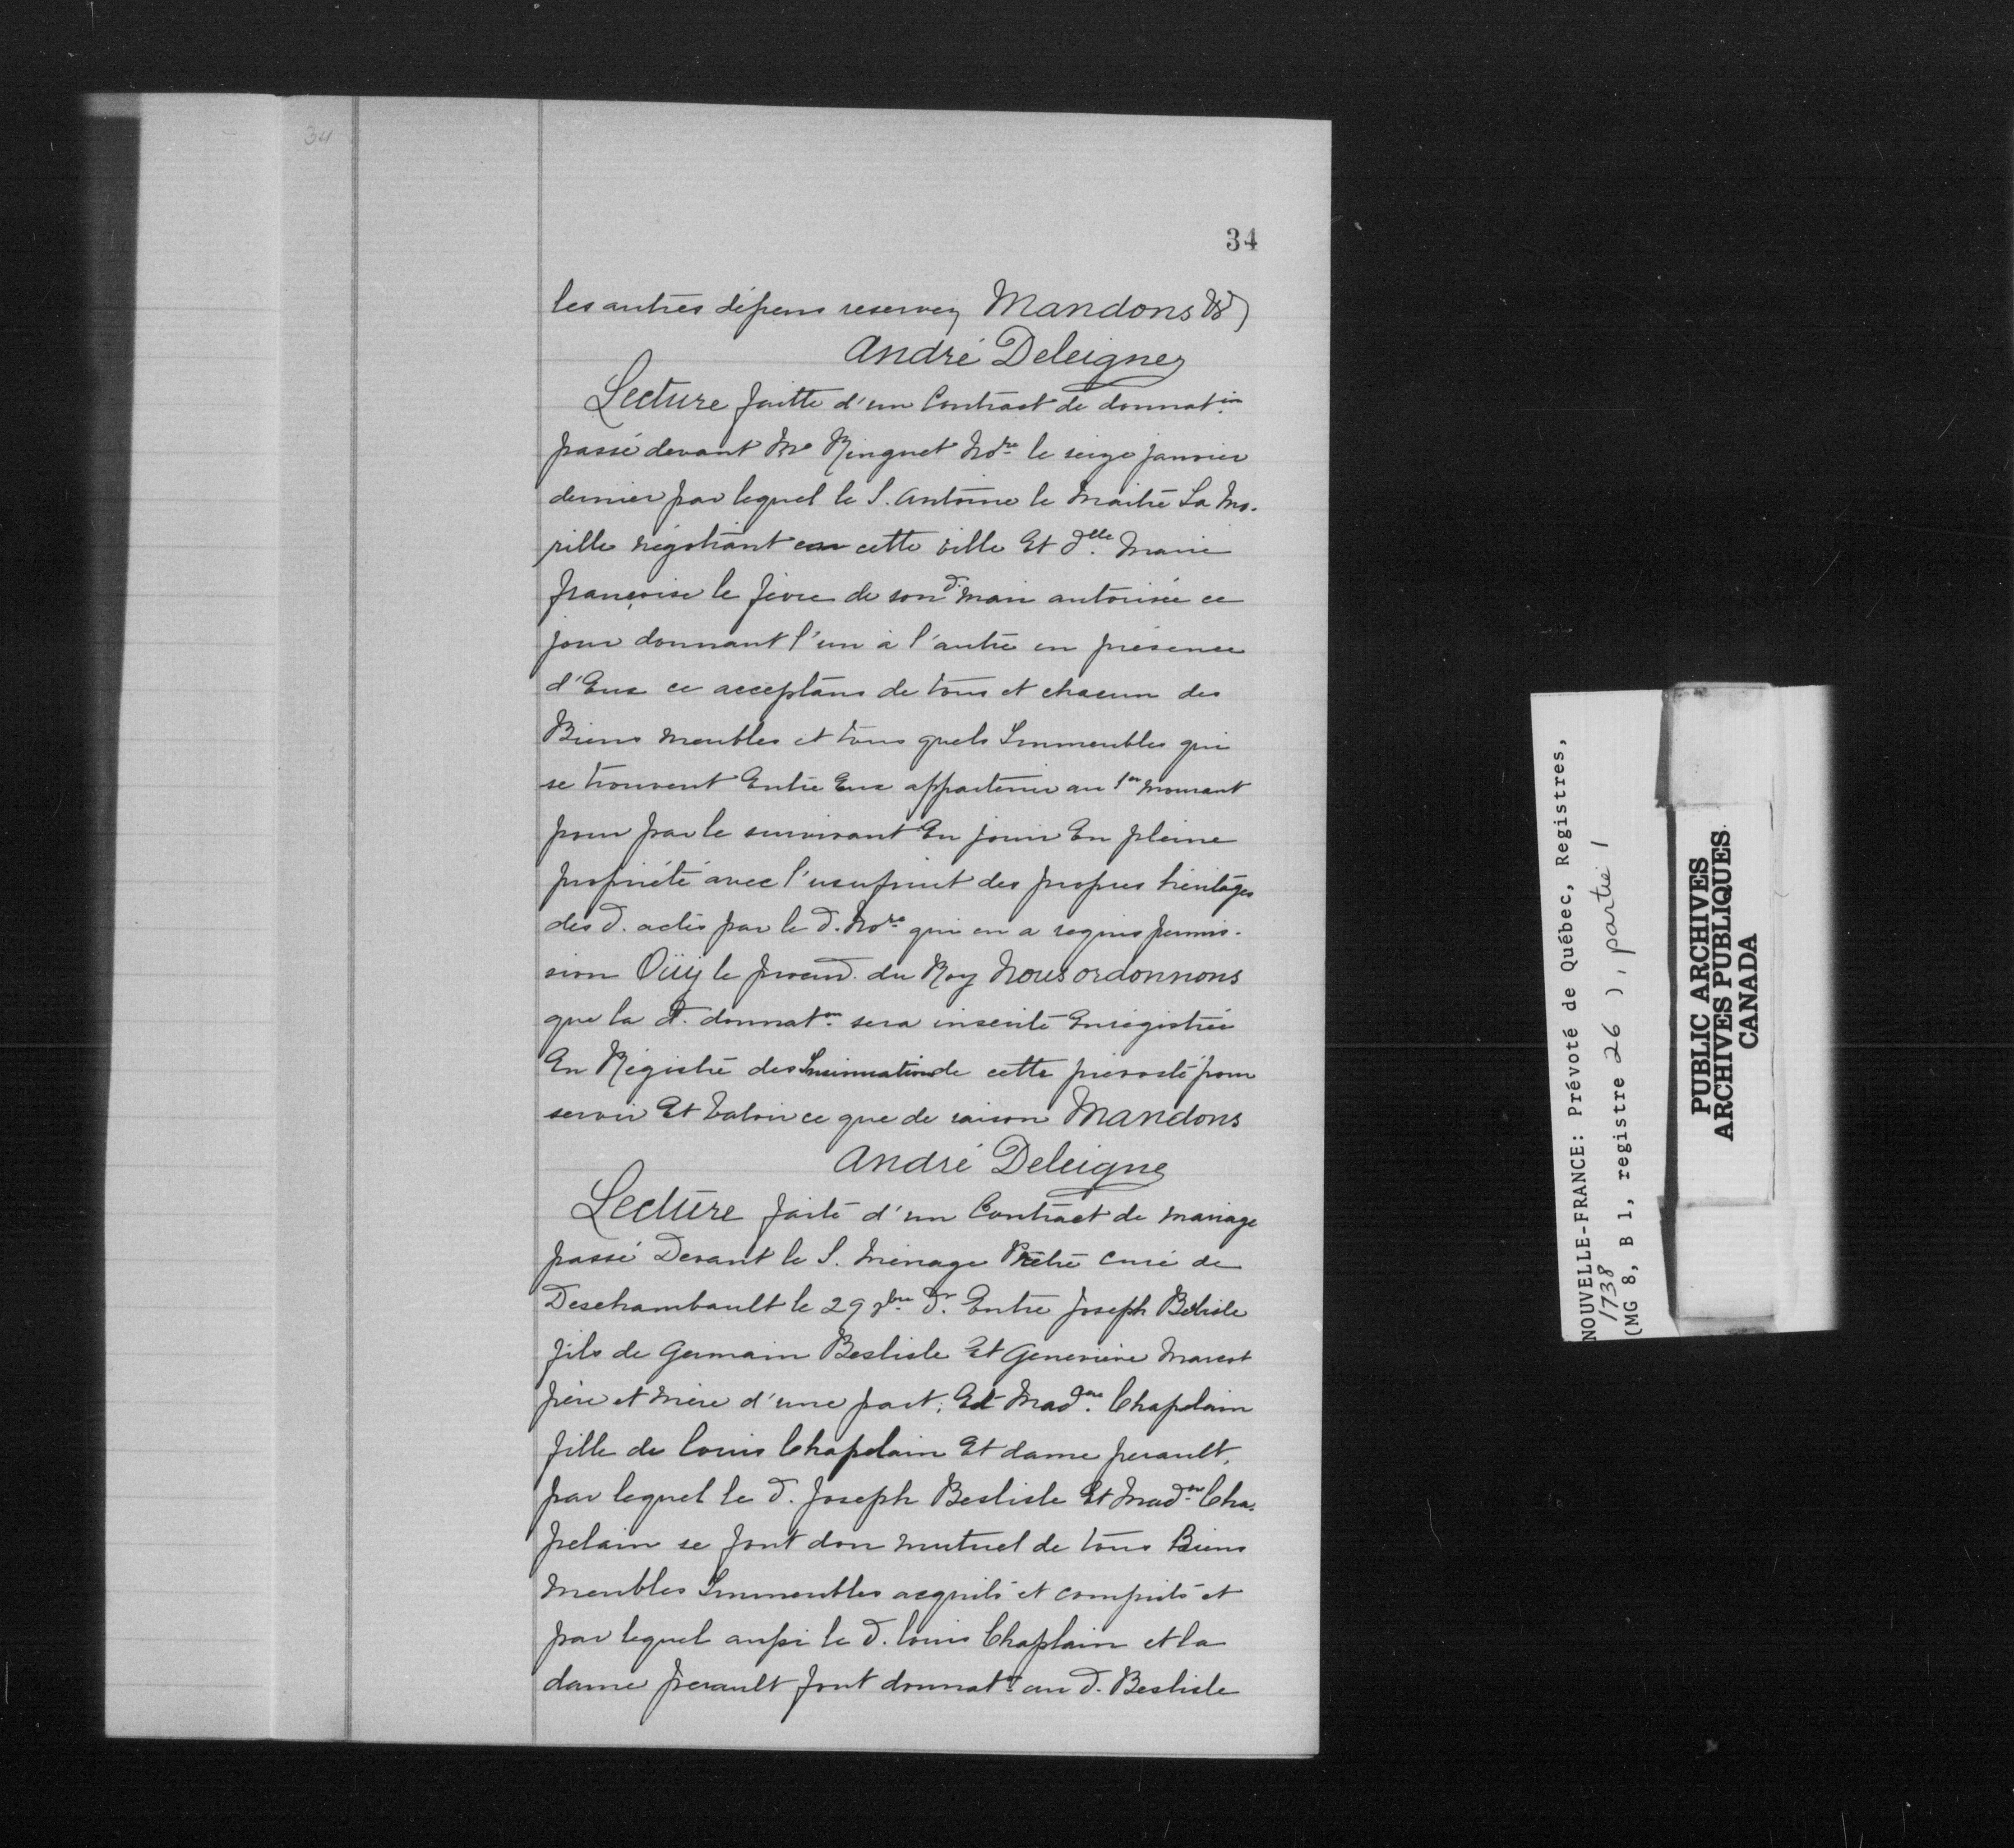 34
34
les autres dépens reservez Mandons &)
André Deleigne
Lecture faitte d'un Contract de donnat.ion
passé devant Me Ringuet No.re le seize janvier
dernier par lequel le S. Antoine le Maitre La Mo-
rille négotiant en cette ville Et d.lle Marie
françoise le fevre de son d. mari autorisée ce
jour donnant l'un à l'autre en présence
d'Eux ce acceptans de tous et chacun des
Biens meubles et tous quels Immeubles qui
se trouvent Entre Eux appartenir au 1er mourant
pour par le survivant En jouir En pleine
propriété avec l'usufruit des propres héritages
des d. actes par le d. No.re qui en a requis permis-
sion Oüy le procur. du Roy Nous ordonnons
que la d. donnat.on sera inscrite Enregistrée
En Régistre des Insinuations de cette prévosté pour
servir Et Valoir ce que de raison Mandons
André Deleigne
Lecture faite d'un Contract de mariage
passé Devant le S. Ménage Prêtre curé de
Deschambault le 29 bre d.r Entre Joseph Belisle
fils de Germain Beslisle Et Geneviève Marcot
père et mère d'une part; Et Mad.ne Chapelain
fille de Louis Chapelain Et dame perault,
par lequel le d. Joseph Beslisle Et Mad.ne Cha-
pelain se font don mutuel de tous Biens
meubles Immeubles acquits et conquits et
par lequel aussi le d. Louis Chaplain et la
dame perault font donnat.on au d. Beslisle
NOUVELLE-FRANCE: Prévoté de Québec, Registres,
1738
(MG 8, B 1, registre 26 ), partie 1
PUBLIC ARCHIVES
ARCHIVES PUBLIQUES
CANADA